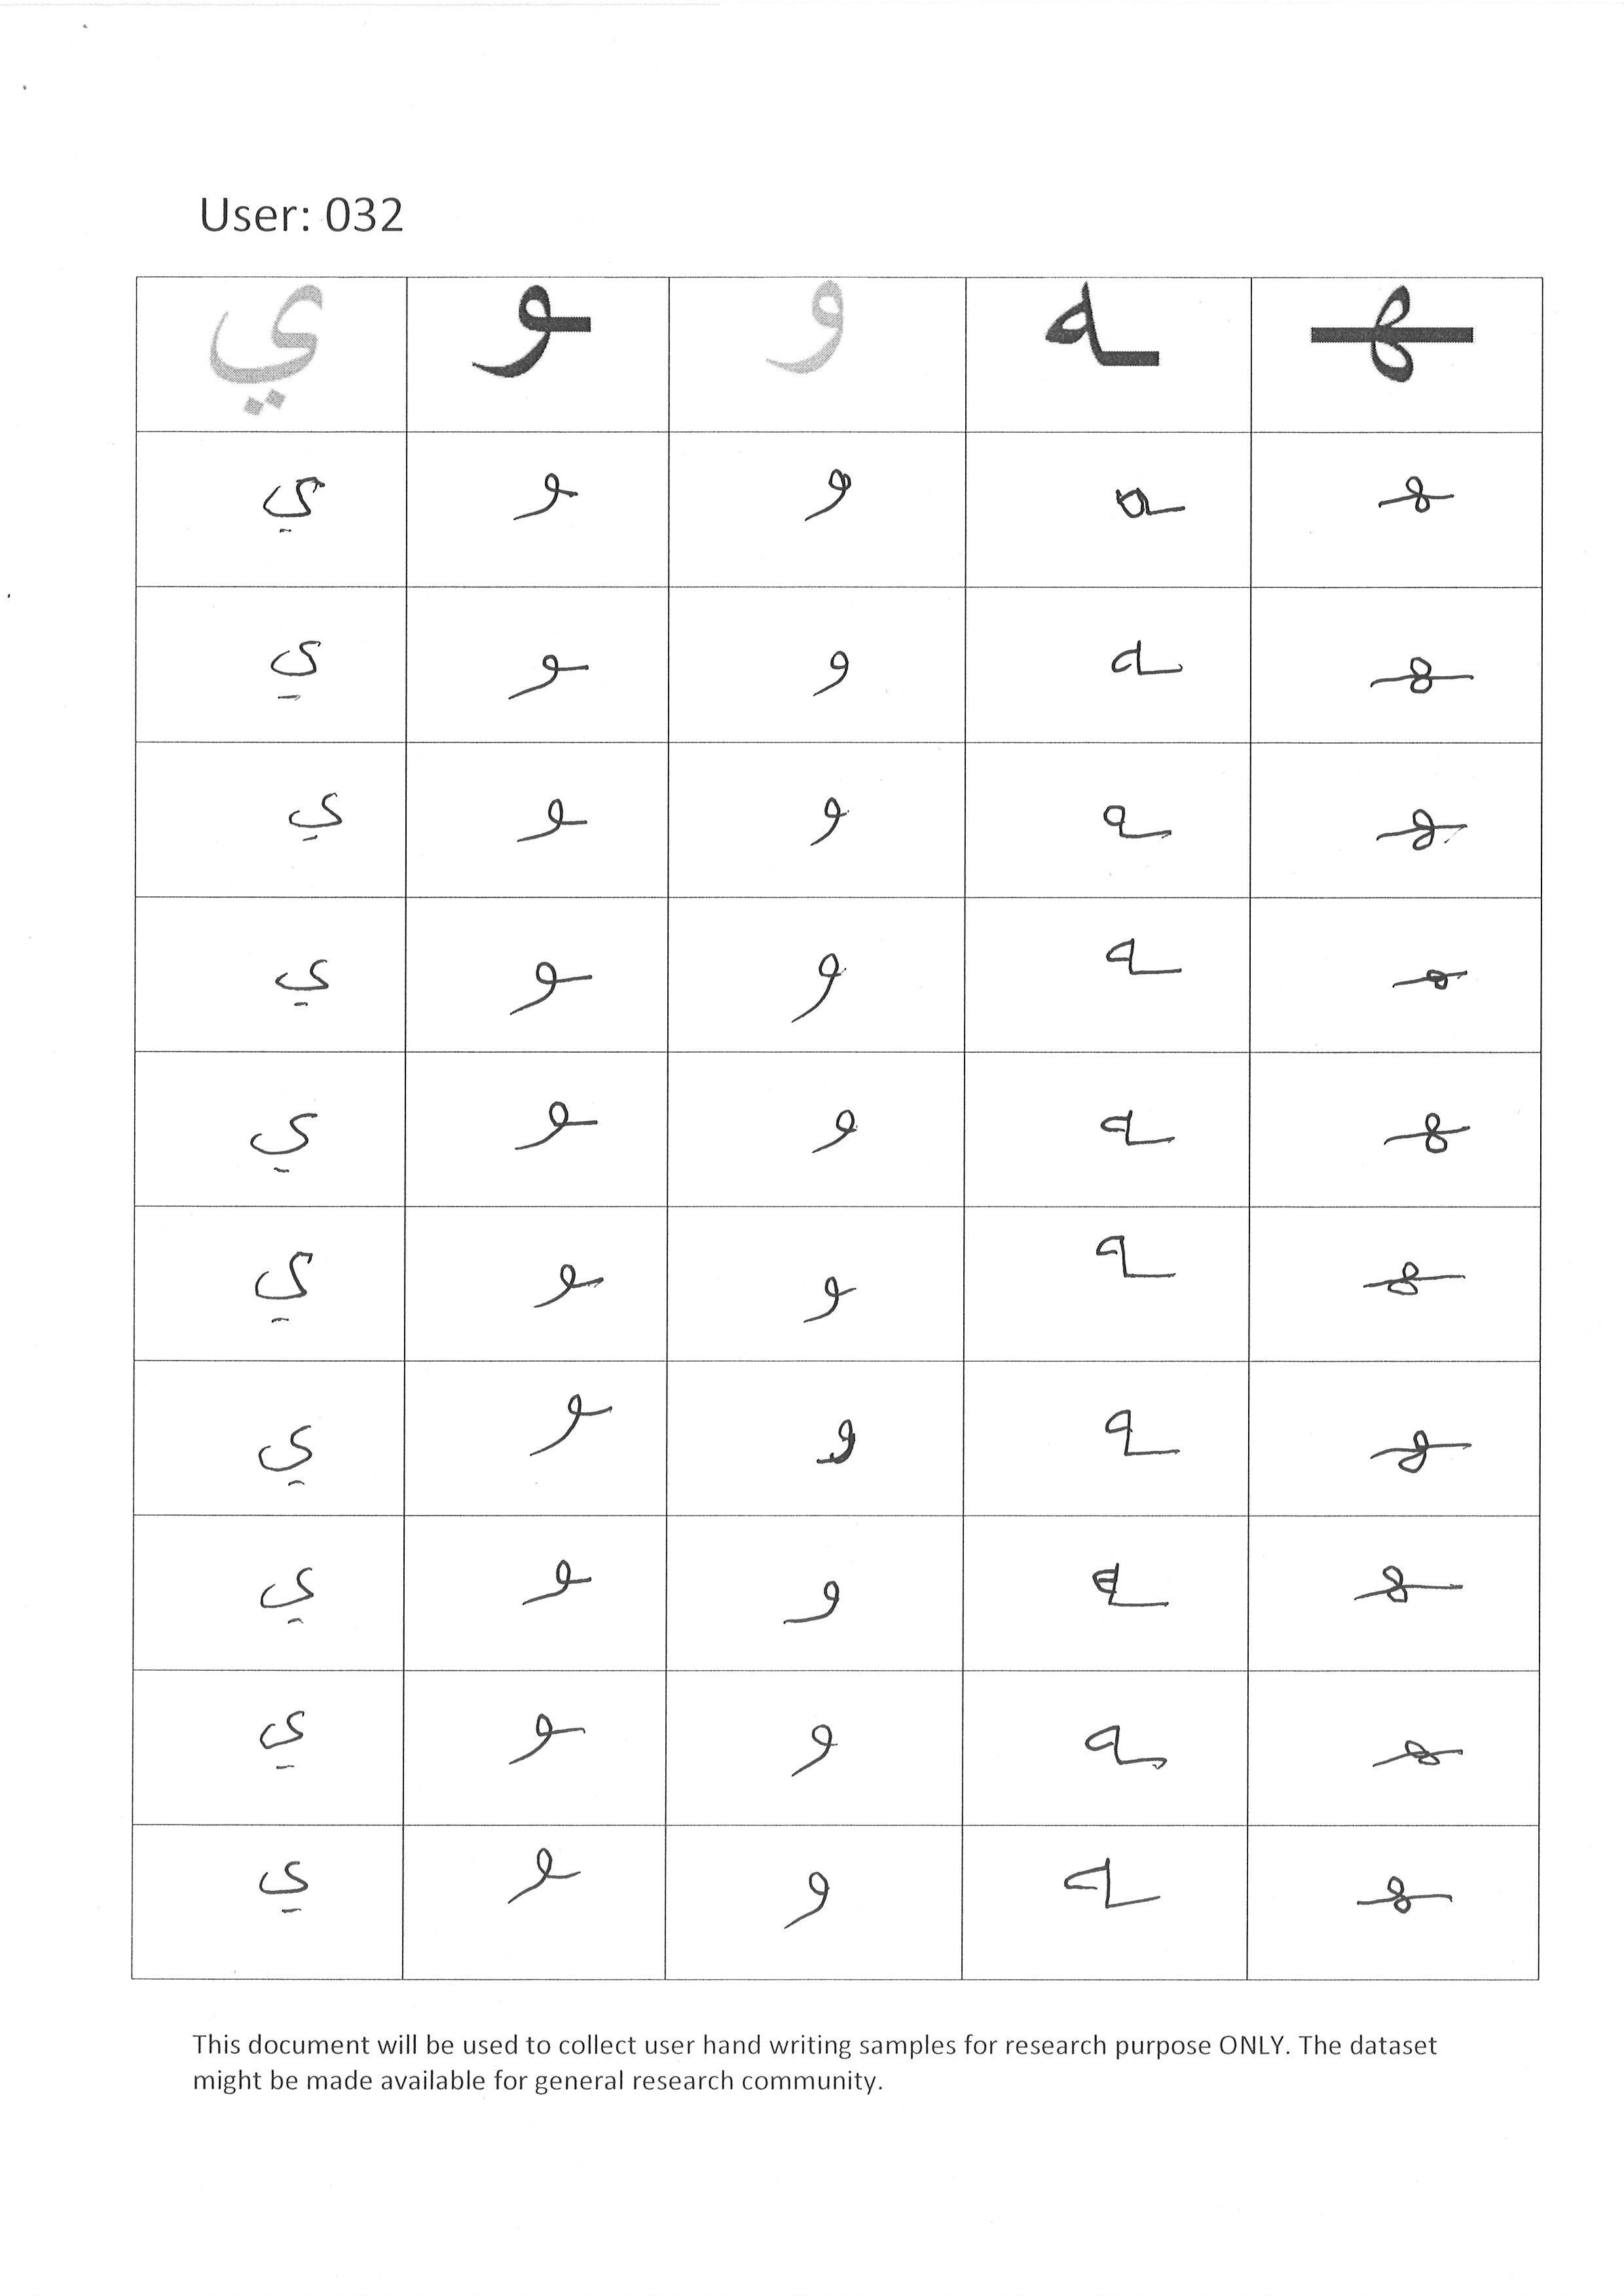 User: 032
ي ـو و ـه ـهـ
ي ـو و ـه ـهـ
ي ـو و ـه ـهـ
ي ـو و ـه ـهـ
ي ـو و ـه ـهـ
ي ـو و ـه ـهـ
ي ـو و ـه ـهـ
ي ـو و ـه ـهـ
ي ـو و ـه ـهـ
ي ـو و ـه ـهـ
ي ـو و ـه ـهـ
This document will be used to collect user hand writing samples for research purpose ONLY. The dataset
might be made available for general research community.